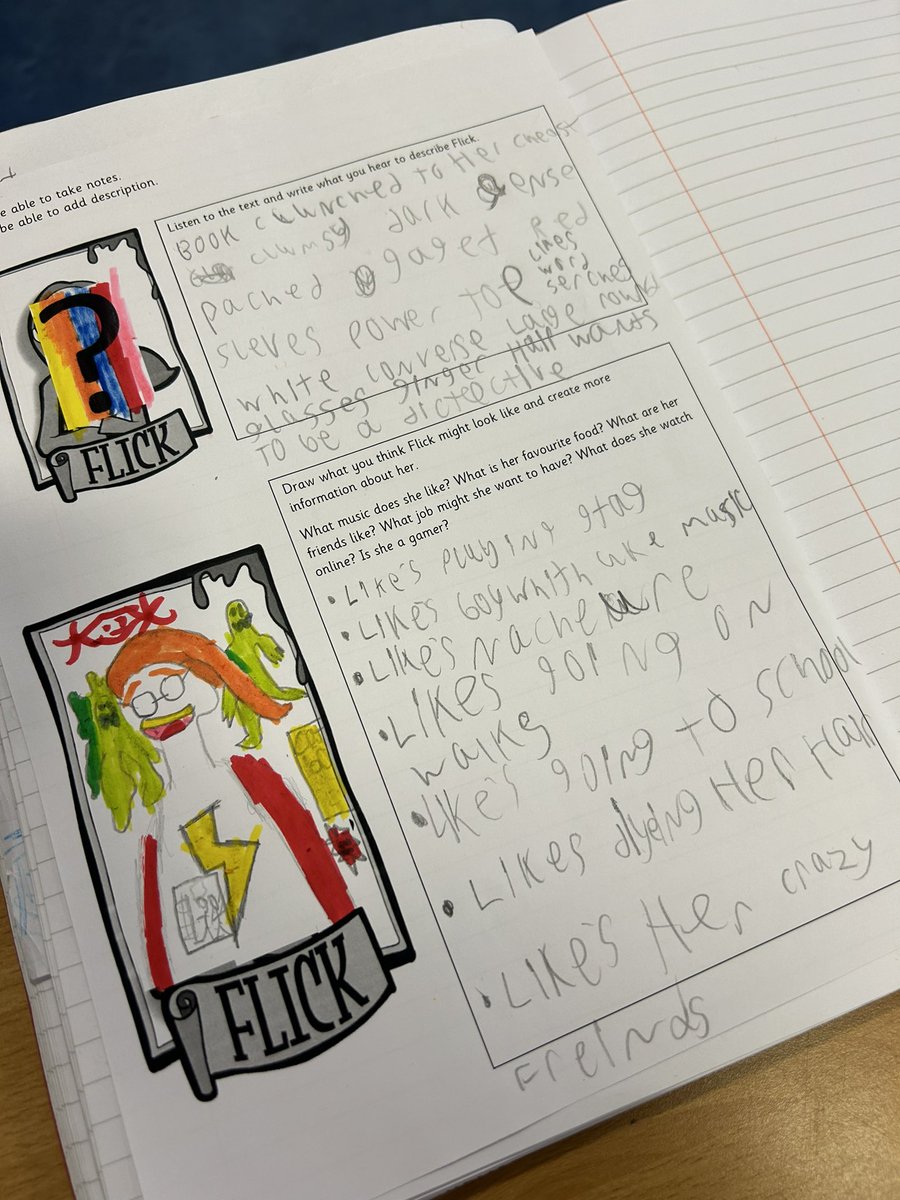 e able to take notes.
be able to add description.
Listen to the text and write what you hear to describe Flick.
BOOK clunched to Her chest
clumsy dark dense
pached gaget Red
sleves power top Likes
word
serches
white converse Large round
glasses ginger Hair wants
TO be a dictective
FLICK
Draw what you think Flick might look like and create more
information about her.
What music does she like? What is her favourite food? What are her
friends like? What job might she want to have? What does she watch
online? Is she a gamer?
• LIKE's playing gtag
• LIKE's boywhith uke music
• LIKE's nachelure
• LIKes going on
walks
• LIKE's going to school
• LIKes dying Her Hair
• LIKE's Her crazy
Freinds
FLICK